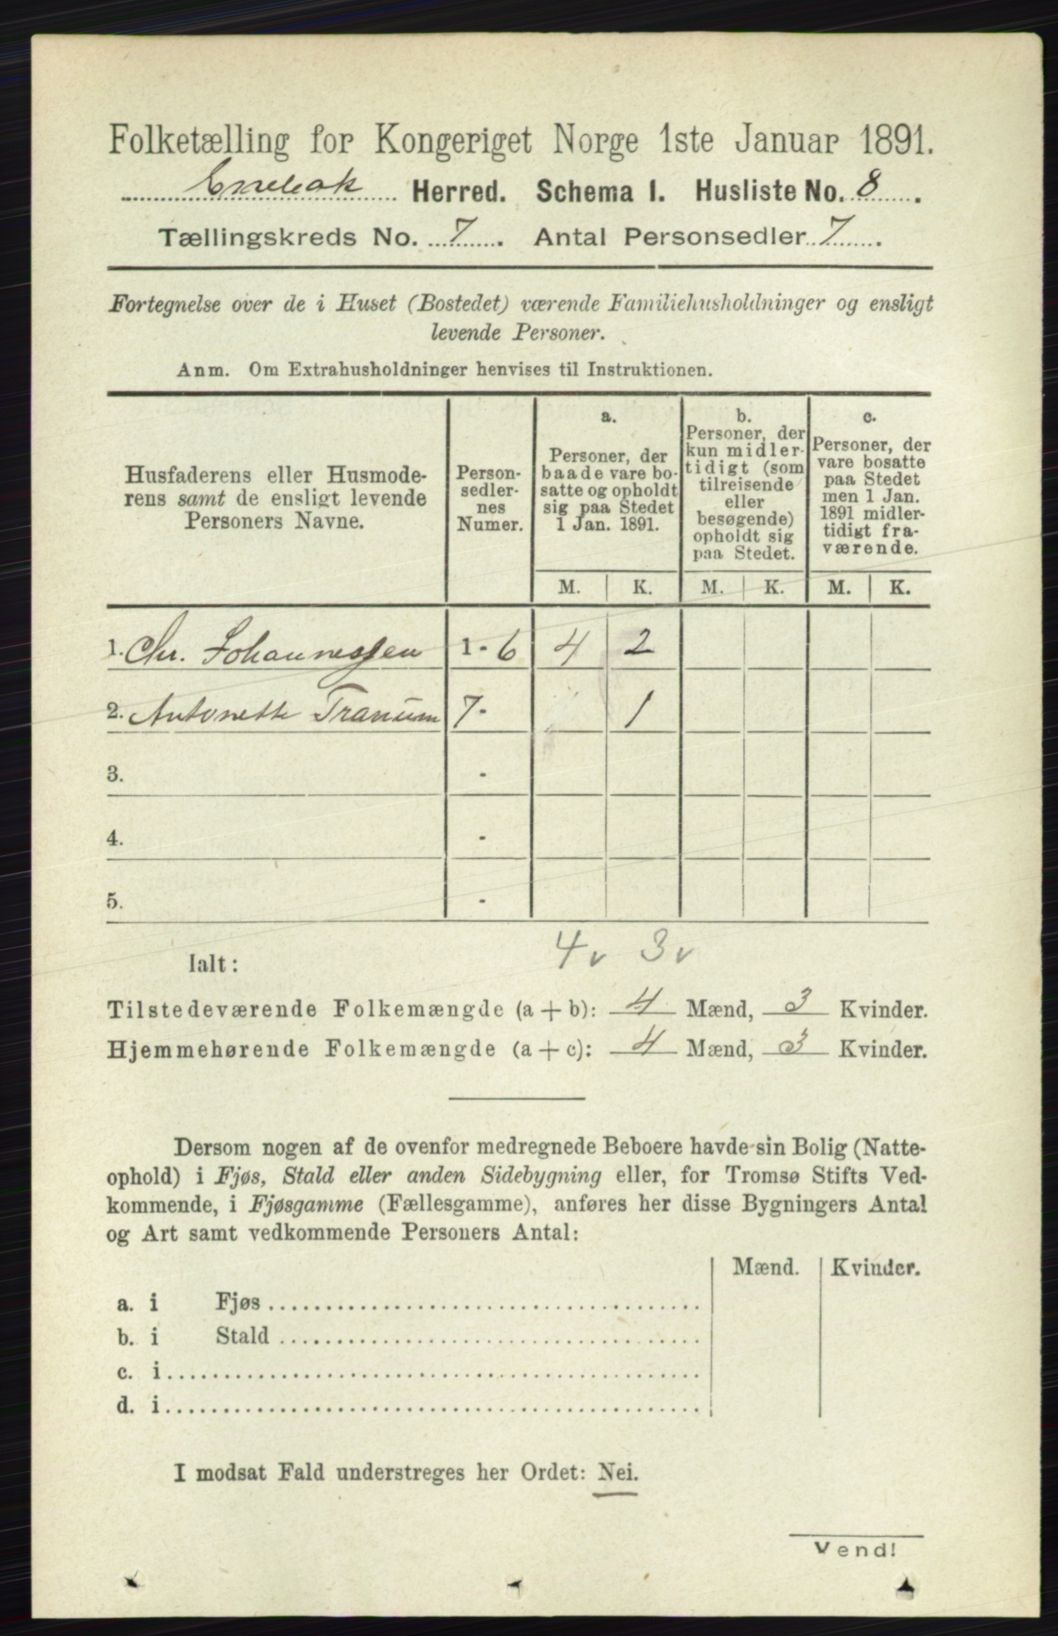 Folketælling for Kongeriget Norge 1ste Januar 1891.
Enebak Herred. Schema 1. Husliste No. 8.
Tællingskreds No. 7. Antal Personsedler 7.
Fortegnelse over de i Huset (Bostedet) værende Familiehusholdninger og ensligt
levende Personer.
Anm. Om Extrahusholdninger henvises til Instruktionen.
Husfaderens eller Husmode-
rens samt de ensligt levende
Personers Navne.
Person-
sedler-
nes
Numer.
a.
Personer, der
baade vare bo-
satte og opholdt
sig paa Stedet
1 Jan. 1891.
b.
Personer, der
kun midler-
tidigt (som
tilreisende
eller
besøgende)
opholdt sig
paa Stedet.
c.
Personer, der
vare bosatte
paa Stedet
men 1 Jan.
1891 midler-
tidigt fra-
værende.
M. K. M. K. M. K.
1. Chr. Johannessen 1-6 4 2
2. Antonette Tranum 7- 1
3. -
4. -
5. -
4v 3v
Ialt:
Tilstedeværende Folkemængde (a + b): 4 Mænd, 3 Kvinder.
Hjemmehørende Folkemængde (a + c): 4 Mænd, 3 Kvinder.
Dersom nogen af de ovenfor medregnede Beboere havde sin Bolig (Natte-
ophold) i Fjøs, Stald eller anden Sidebygning eller, for Tromsø Stifts Ved-
kommende, i Fjøsgamme (Fællesgamme), anføres her disse Bygningers Antal
og Art samt vedkommende Personers Antal:
Mænd. Kvinder.
a. i Fjøs
b. i Stald
c. i
d. i
I modsat Fald understreges her Ordet: Nei.
Vend!